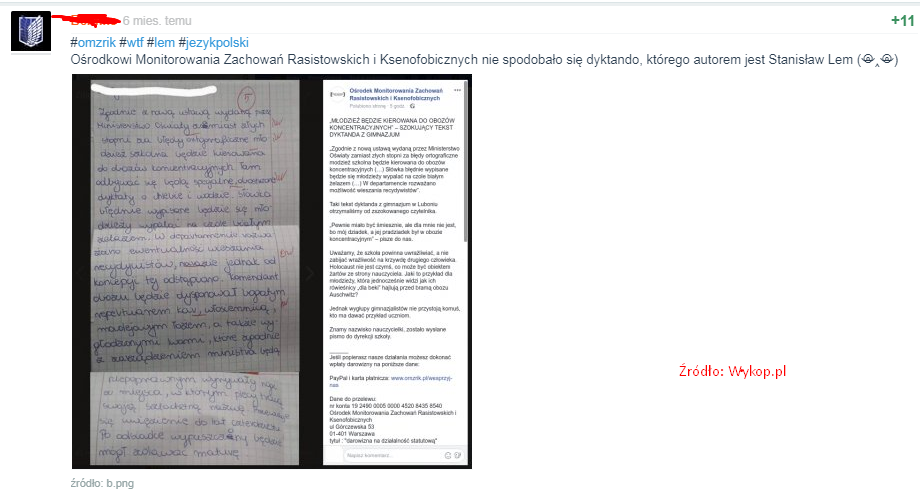 6 mies. temu
+11
#omzrik #wtf #lem #jezykpolski
Ośrodkowi Monitorowania Zachowań Rasistowskich i Ksenofobicznych nie spodobało się dyktando, którego autorem jest Stanisław Lem
Zgodnie z nową ustawą wydaną przez
Ministerstwo Oświaty zamiast złych
stopni za błędy ortograficzne mło
dzież szkolna będzie kierowana
do obozów koncentracyjnych. Tam
odbywać się będą specjalne
dyktaty o chlebie i wodzie. Słówka
błędnie wypisane będzie się mło
dzieży wypalać na czole białym
żelazem. W departamencie rozwa
żano ewentualność wieszania
recydywistów, jednak od
koncepcji tej odstąpiono. Komendant
obozu będzie dysponował bogatym
repertuarem kar, włosiennicą,
madejowym łożem, a także wy
głodzonymi lwami, które zgodnie
z zarządzeniem ministra będą
niepoprawnym wygryzały
miejsca, w którym
swoją szlachetną
się do lat czterdziestu
Po odsiadce wypuszczony będzie
mógł zdawać maturę.
Ośrodek Monitorowania Zachowań
Rasistowskich i Ksenofobicznych
Polubiono stronę · 5 godz.
„MŁODZIEŻ BĘDZIE KIEROWANA DO OBOZÓW
KONCENTRACYJNYCH" – SZOKUJĄCY TEKST
DYKTANDA Z GIMNAZJUM
„Zgodnie z nową ustawą wydaną przez Ministerstwo
Oświaty zamiast złych stopni za błędy ortograficzne
młodzież szkolna będzie kierowana do obozów
koncentracyjnych (...) Słówka błędnie wypisane
będzie się młodzieży wypalać na czole białym
żelazem (...) W departamencie rozważano
możliwość wieszania recydywistów".
Taki tekst dyktanda z gimnazjum w Luboniu
otrzymaliśmy od zszokowanego czytelnika.
„Pewnie miało być śmiesznie, ale dla mnie nie jest,
bo mój dziadek, a jej pradziadek był w obozie
koncentracyjnym" – pisze do nas.
Uważamy, że szkoła powinna uwrażliwiać, a nie
zabijać wrażliwość na krzywdę drugiego człowieka.
Holocaust nie jest czymś, co może być obiektem
żartów ze strony nauczyciela. Jaki to przykład dla
młodzieży, która jednocześnie widzi jak ich
rówieśnicy „dla beki" hajlują przed bramą obozu
Auschwitz?
Jednak wygłupy gimnazjalistów nie przystoją komuś,
kto ma dawać przykład uczniom.
Znamy nazwisko nauczycielki, zostało wysłane
pismo do dyrekcji szkoły.
Jeśli popierasz nasze działania możesz dokonać
wpłaty darowizny na poniższe dane:
PayPal i karta płatnicza: www.omzrik.pl/wesprzyj-
nas
Dane do przelewu:
nr konta 19 2490 0005 0000 4520 8435 8540
Ośrodek Monitorowania Zachowań Rasistowskich i
Ksenofobicznych
ul Górczewska 53
01-401 Warszawa
tytuł : "darowizna na działalność statutową"
Napisz komentarz...
Źródło: Wykop.pl
źródło: b.png